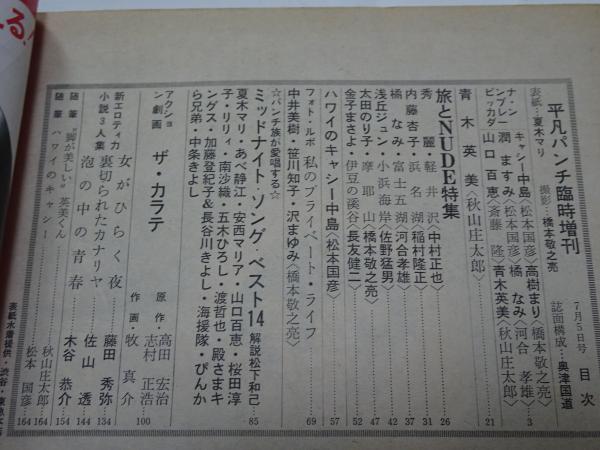 平凡パンチ臨時増刊
7月5日号 目次
表紙・夏木マリ 撮影・橋本敬之亮 誌面構成――奥津国道
ナ・ン
ンプレ・
ビッカダー
キャシー中島〈松本国彦〉高樹まり〈橋本敬之亮〉 3
潤ますみ〈松本国彦〉橘なみ〈河合孝雄〉
山口百恵〈斎藤隆〉青木英美〈秋山庄太郎〉
青木英美〈秋山庄太郎〉 21
旅とNUDE特集
秀麗・軽井沢〈中村正也〉 26
内藤杏子・浜名湖〈稲村隆正〉 31
橘なみ・富士五湖〈河合孝雄〉 37
浅丘ジュン・小浜海岸〈佐野猛男〉 42
太田のり子・摩耶山〈橋本敬之亮〉 47
金子まさよ・伊豆の溪谷〈長友健二〉 52
ハワイのキャシー中島〈松本国彦〉 57
フォト・ルポ 私のプライベート・ライフ 69
中井美樹・笹川知子・沢まゆみ〈橋本敬之亮〉
☆パンチ族が愛唱する☆
ミッドナイト・ソング・ベスト14 解説松下和己 85
夏木マリ・あべ静江・安西マリア・山口百恵・桜田淳
子・リリィ・南沙織・五木ひろし・渡哲也・殿さまキ
ングス・加藤登紀子&長谷川きよし・海援隊・ぴんか
ら兄弟・中条きよし
アクショ
ン劇画 ザ・カラテ
原作・高田宏治
志村正浩
作画・牧真介 100
新エロティカ
小説3人集
女がひらく夜 藤田秀弥 134
裏切られたカナリヤ 佐山透 144
泡の中の青春 木谷恭介 154
随筆 “脚が美しい”英美くん 秋山庄太郎 164
随筆 ハワイのキャシー 松本国彦 164
表紙水着提供・渋谷・東急